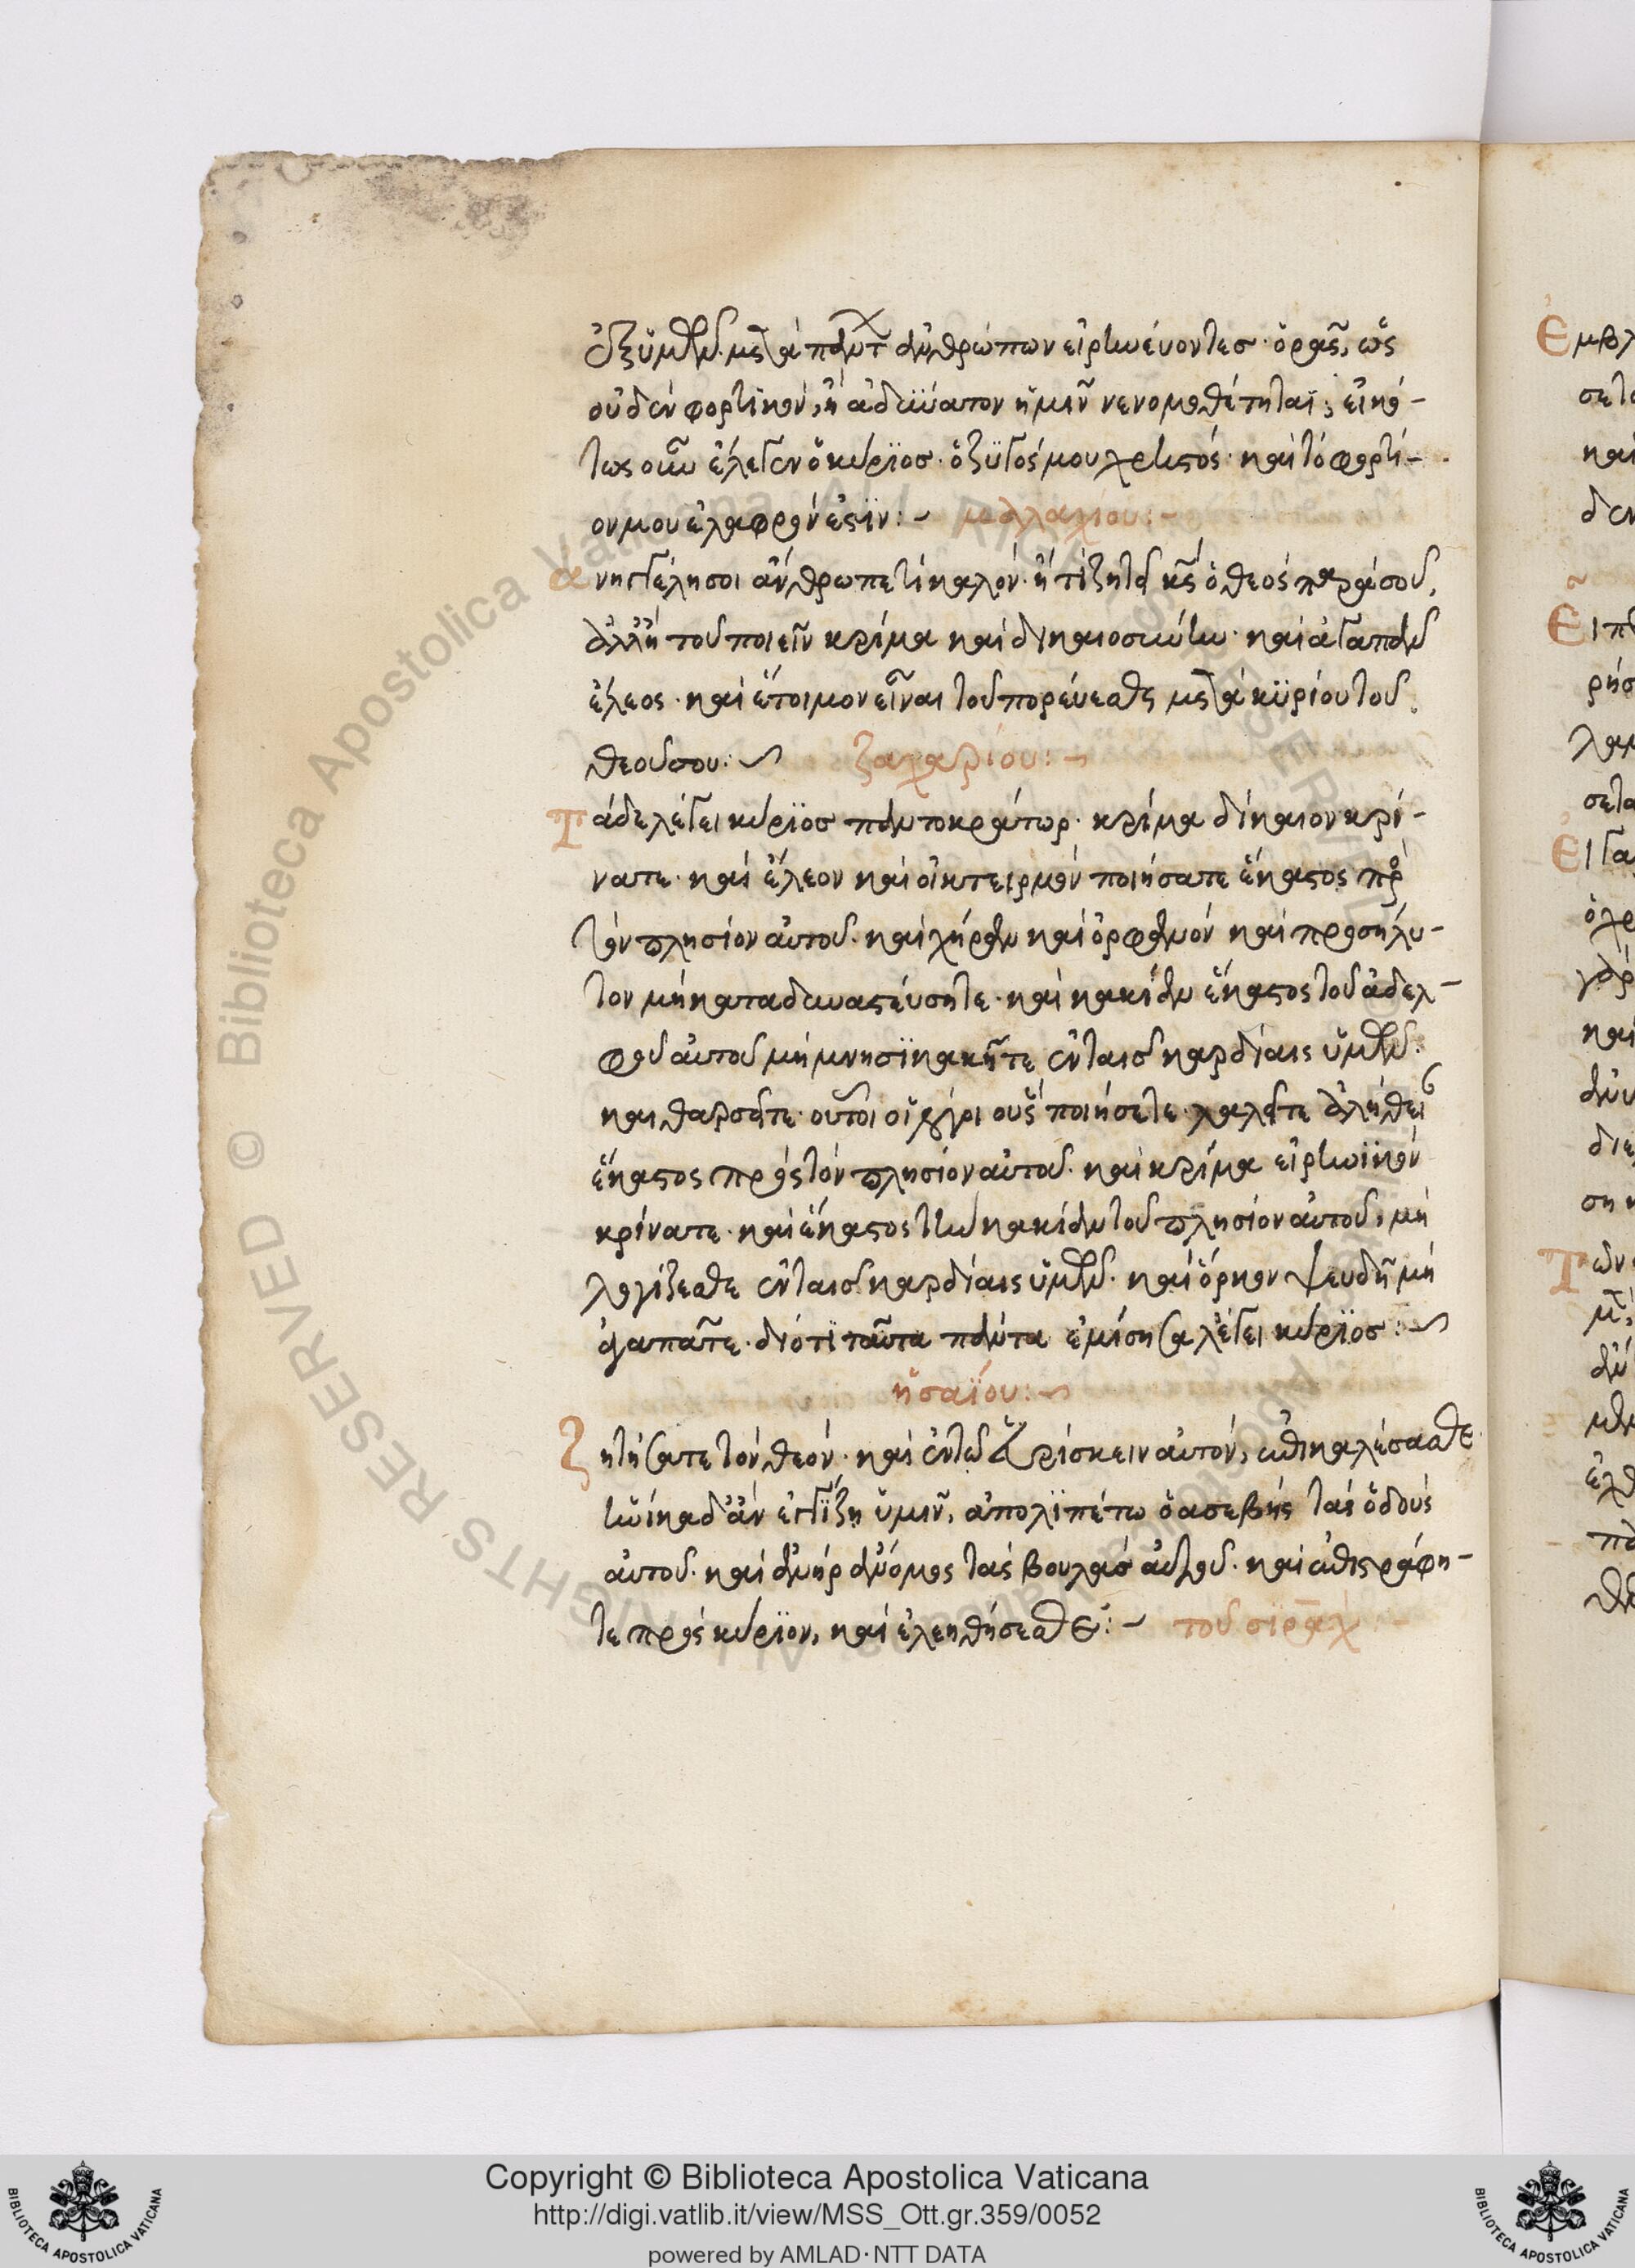 ἐξ ὑμῶν μετὰ πάντων ἀνθρώπων εἰρηνεύοντες· ὁρᾶς, ὡς
οὐδὲν φορτικὸν, ἢ ἀδύνατον ἡμῖν νενομοθέτηται; εἰκό-
τως οὖν ἔλεγεν ὁ κύριος· ὁ ζυγός μου χρηστός· καὶ τὸ φορτί-
ον μου ἐλαφρόν ἐστιν:~ μαλαχίου:~
ἀνηγγέλη σοι ἄνθρωπε τί καλόν· ἢ τί ζητεῖ κς ὁ θεὸς παρὰ σοῦ,
ἀλλ' ἢ τοῦ ποιεῖν κρίμα καὶ δικαιοσύνην· καὶ ἀγαπᾶν
ἔλεος· καὶ ἕτοιμον εἶναι τοῦ πορεύεσθαι μετὰ κυρίου τοῦ
θεοῦ σου:~ ζαχαρίου:~
Τάδε λέγει κύριος παντοκράτωρ· κρίμα δίκαιον κρί-
νατε· καὶ ἔλεον καὶ οἰκτειρμὸν ποιήσατε ἕκαστος πρὸς
τὸν πλησίον αὐτοῦ· καὶ χήραν καὶ ὀρφανὸν καὶ προσήλυ-
τον μὴ καταδυναστεύσητε· καὶ κακίαν ἕκαστος τοῦ ἀδελ-
φοῦ αὐτοῦ μὴ μνησικακεῖτε ἐν ταῖς καρδίαις ὑμῶν·
και θαρσεῖτε· οὗτοι οἱ λόγοι οὓς ποιήσετε· λαλεῖτε ἀλήθειαν
ἕκαστος πρὸς τὸν πλησίον αὐτοῦ· καὶ κρίμα εἰρηνικὸν
κρίνατε· καὶ ἕκαστος τὴν κακίαν τοῦ πλησίον αὐτοῦ, μὴ
λογίζεσθε ἐν ταῖς καρδίαις ὑμῶν· καὶ ὅρκον ψευδῆ μὴ
ἀγαπᾶτε· διότι ταῦτα πάντα ἐμίσησα λέγει κύριος:~
ἡσαΐου:~
Ζητήσατε τὸν θεόν· καὶ ἐν τῷ εὑρίσκειν αὐτὸν, ἐπικαλέσασθε·
ἡνίκα δ' ἂν ἐγγίζῃ ὑμῖν, ἀπολιπέτω ὁ ἀσεβὴς τὰς ὁδοὺς
αὐτοῦ· καὶ ἀνὴρ ἄνομος τὰς βουλὰς αὐτοῦ· καὶ ἐπιστράφη-
τε πρὸς κύριον, καὶ ἐλεηθήσεσθε:~ τοῦ σιραχ:~
Copyright © Biblioteca Apostolica Vaticana
http://digi.vatlib.it/view/MSS_Ott.gr.359/0052
powered by AMLAD·NTT DATA